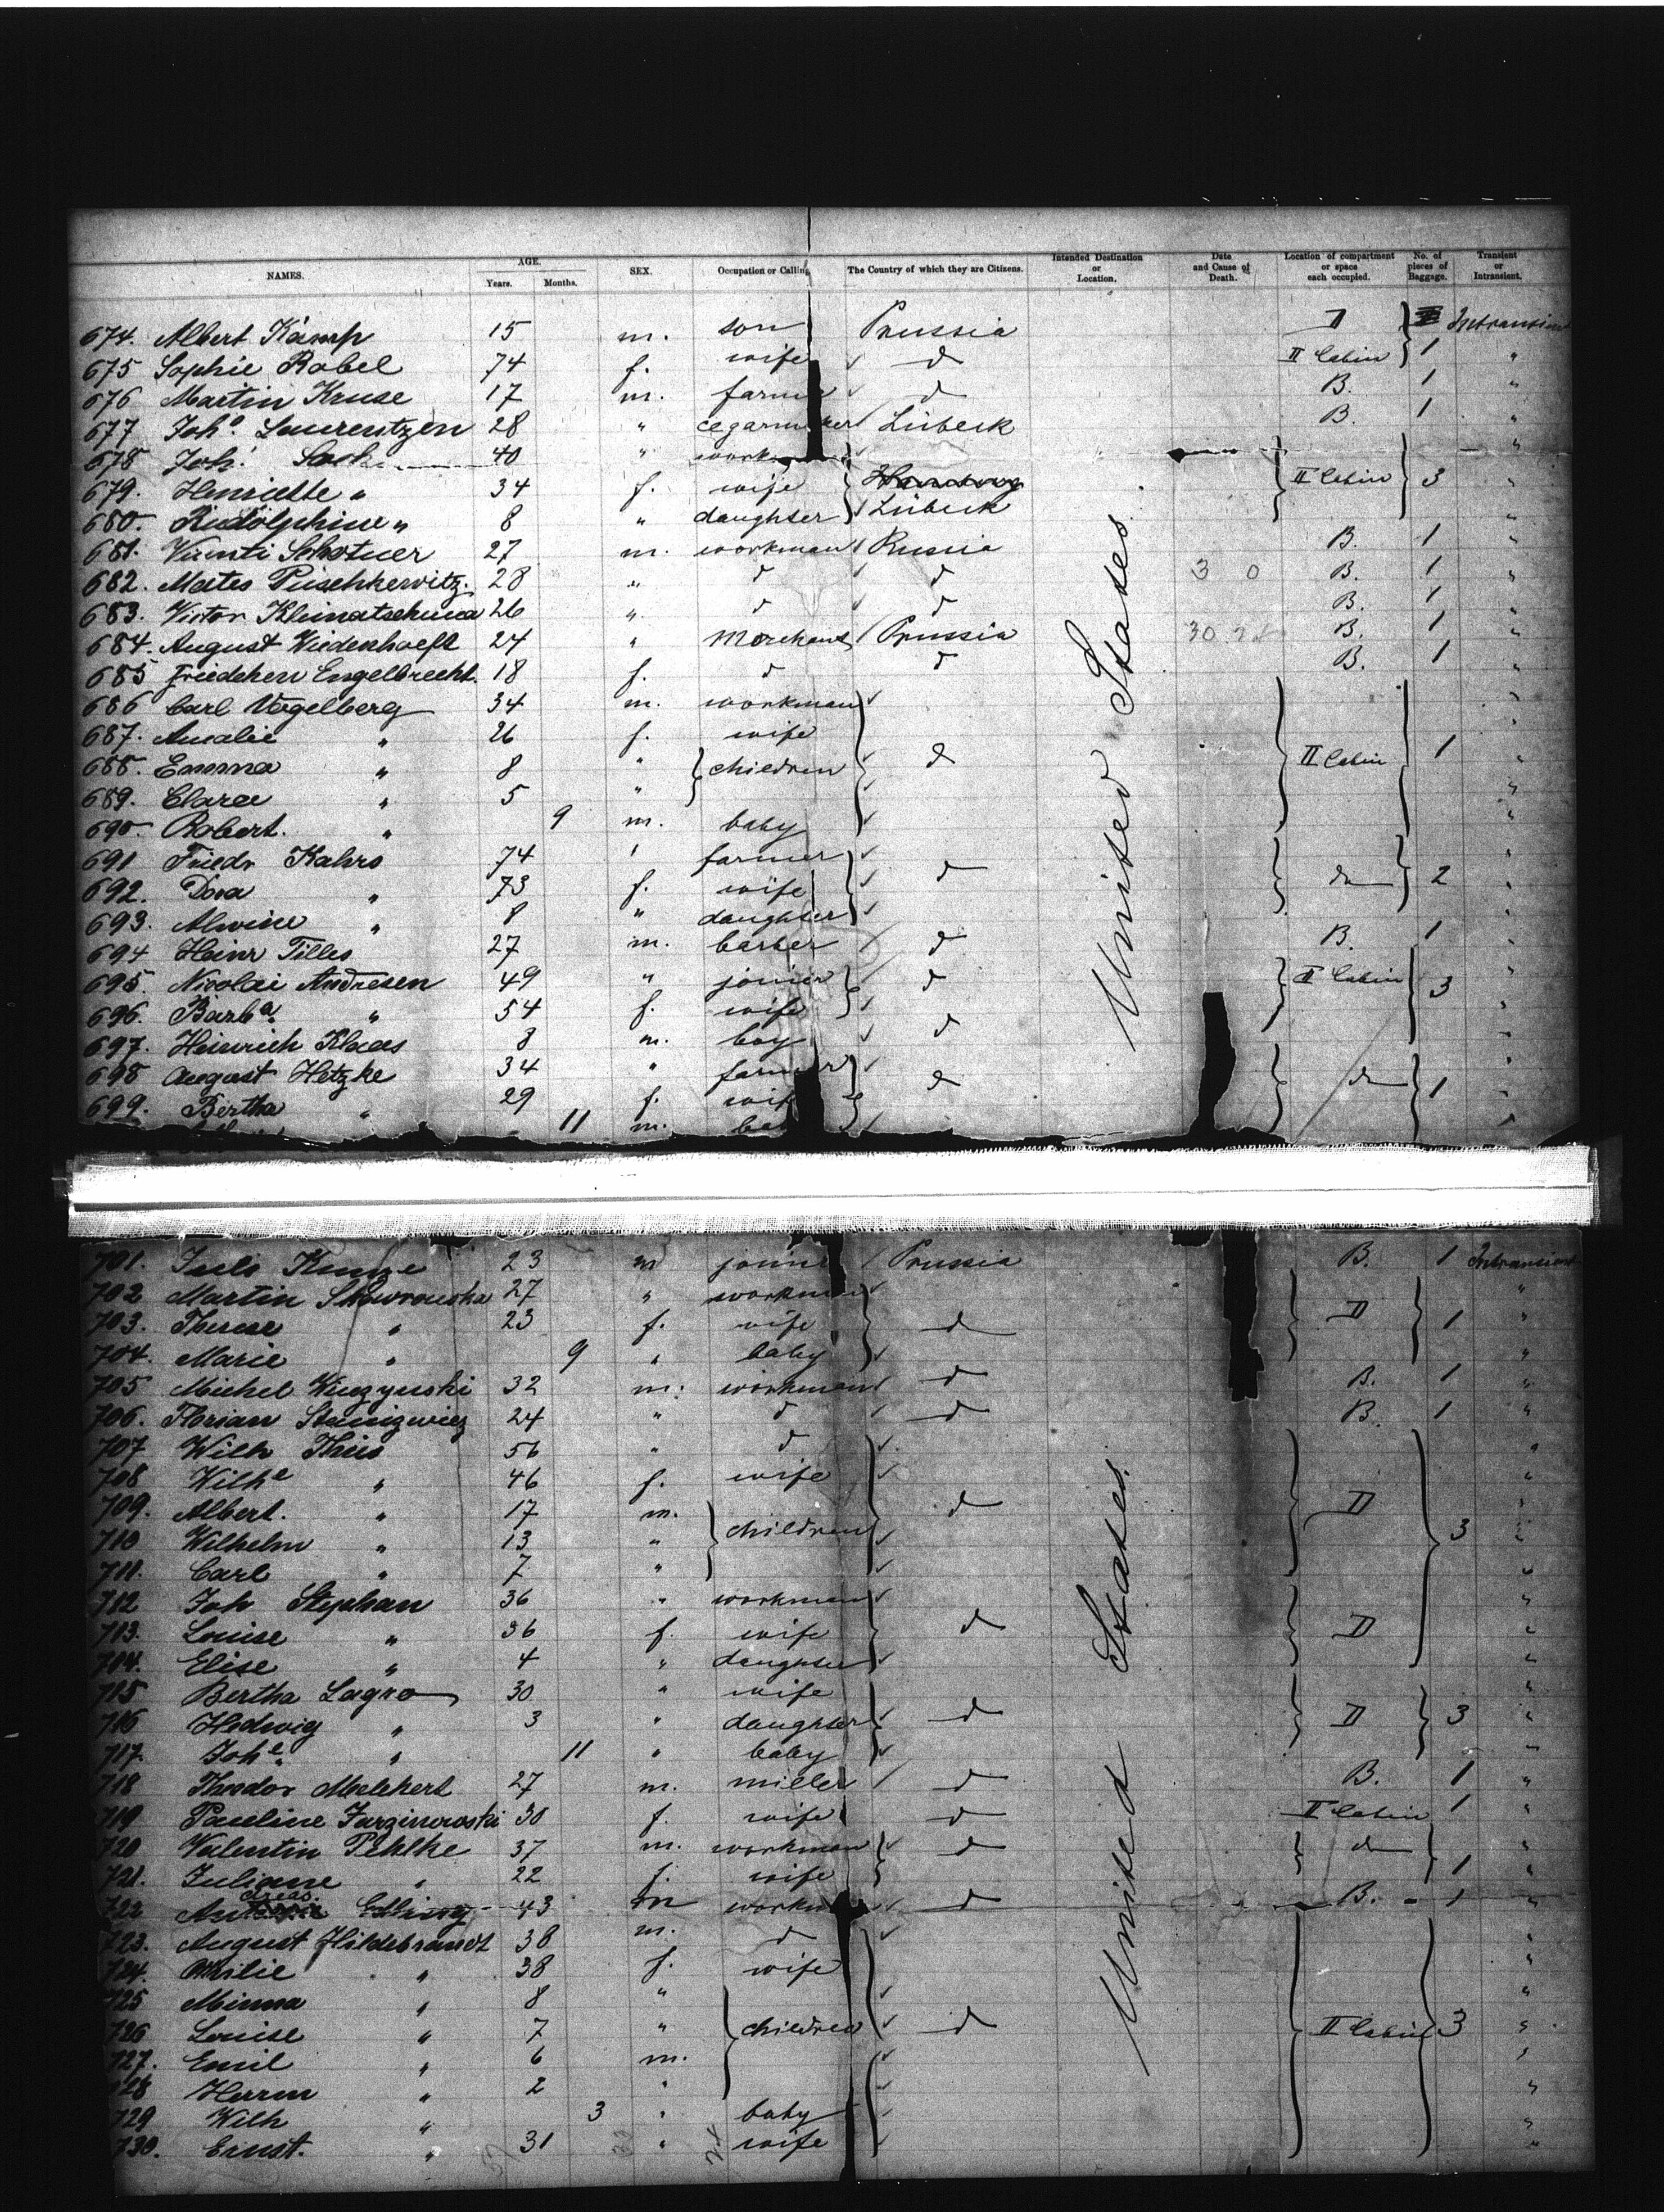 NAMES. AGE. Years. Months. SEX. Occupation or Calling The Country of which they are Citizens. Intended Destination or Location. Date and Cause of Death. Location of compartment or space each occupied. No. of pieces of Baggage. Transient or Intransient.
674. Albert Kämp 15 m. son Prussia D Intransient
675 Sophie Rabel 74 f. wife d II Cabin 1 "
676 Martin Kruse 17 m. farme d B. 1 "
677 Joh. Laurentzen 28 " cegarmaker Lübeck B. 1 "
678 Joh. 40 " work "
679. Henriette " 34 f. wife Hamburg II Cabin 3 "
680. Rudolphine " 8 " daughter Lübeck "
681. Schotner 27 m. workman Russia B. 1 "
682. Mates Pischkewitz. 28 " d d 3 0 B. 1 "
683. Victor Klimatschewa 26 " d d B. 1 "
684. August Wiedenhoeft 24 " Merchant Prussia 30 B. 1 "
685 Friedchen Engelbrecht. 18 f. d d B. 1 "
686 Carl Vogelberg 34 m. workman "
687. Amalie " 26 f. wife "
688. Emma " 8 " children d II Cabin 1 "
689. Clara " 5 " "
690. Robert. " 9 m. baby "
691 Friedr Kahrs 74 ' farmer "
692. Dora " 73 f. wife d do 2 "
693. Alwine " 8 " daughter "
694 Heinr Tilles 27 m. barber d B. 1 "
695. Nicolai Andresen 49 " joiner d II Cabin 3 "
696. Barba. " 54 f. wife "
697. Heinrich Klaas 8 m. boy d "
698 August Hetzke 34 " farmer d do 1 "
699. Bertha " 29 f. wife "
11 m. ba "
701. Juls Kunze 23 m joine Prussia B. 1 Intransient
702 Martin Skowronska 27 " workman "
703. Therese " 23 f. wife d D 1 "
704. Marie " 9 " baby "
705 Michel Winzynski 32 m. workman d B. 1 "
706. Florian Stanizwicz 24 " d d B. 1 "
707 Wilh Thies 56 " d "
708 Wilhe " 46 f. wife "
709. Albert. " 17 m. children d D 3 "
710 Wilhelm " 13 " "
711. Carl " 7 " "
712 Joh Stephan 36 " workman "
713. Louise " 36 f. wife d D "
714. Elise " 4 " daughter "
715 Bertha Lagro 30 " wife "
716 Hedwig " 3 " daughter d D 3 "
717. Johe. " 11 " baby "
718 Theodor Melchert 27 m. miller d B. 1 "
719 Pauline Jurzinowski 30 f. wife d II Cabin 1 "
720 Valentin Pehlke 37 m. workman d do "
721. Juliane " 22 f. wife 1 "
722 Andreas Edling 43 m workm d B. 1 "
723. August Hildebrandt 38 m. d "
724. Ottilie " 38 f. wife "
725 Minna " 8 " "
726 Louise " 7 " children d II Cabin 3 "
727. Emil " 6 m. "
728 Herrm " 2 " "
729 Wilh " 3 " baby "
730. Ernst. " 31 " wife "
United States
United States.